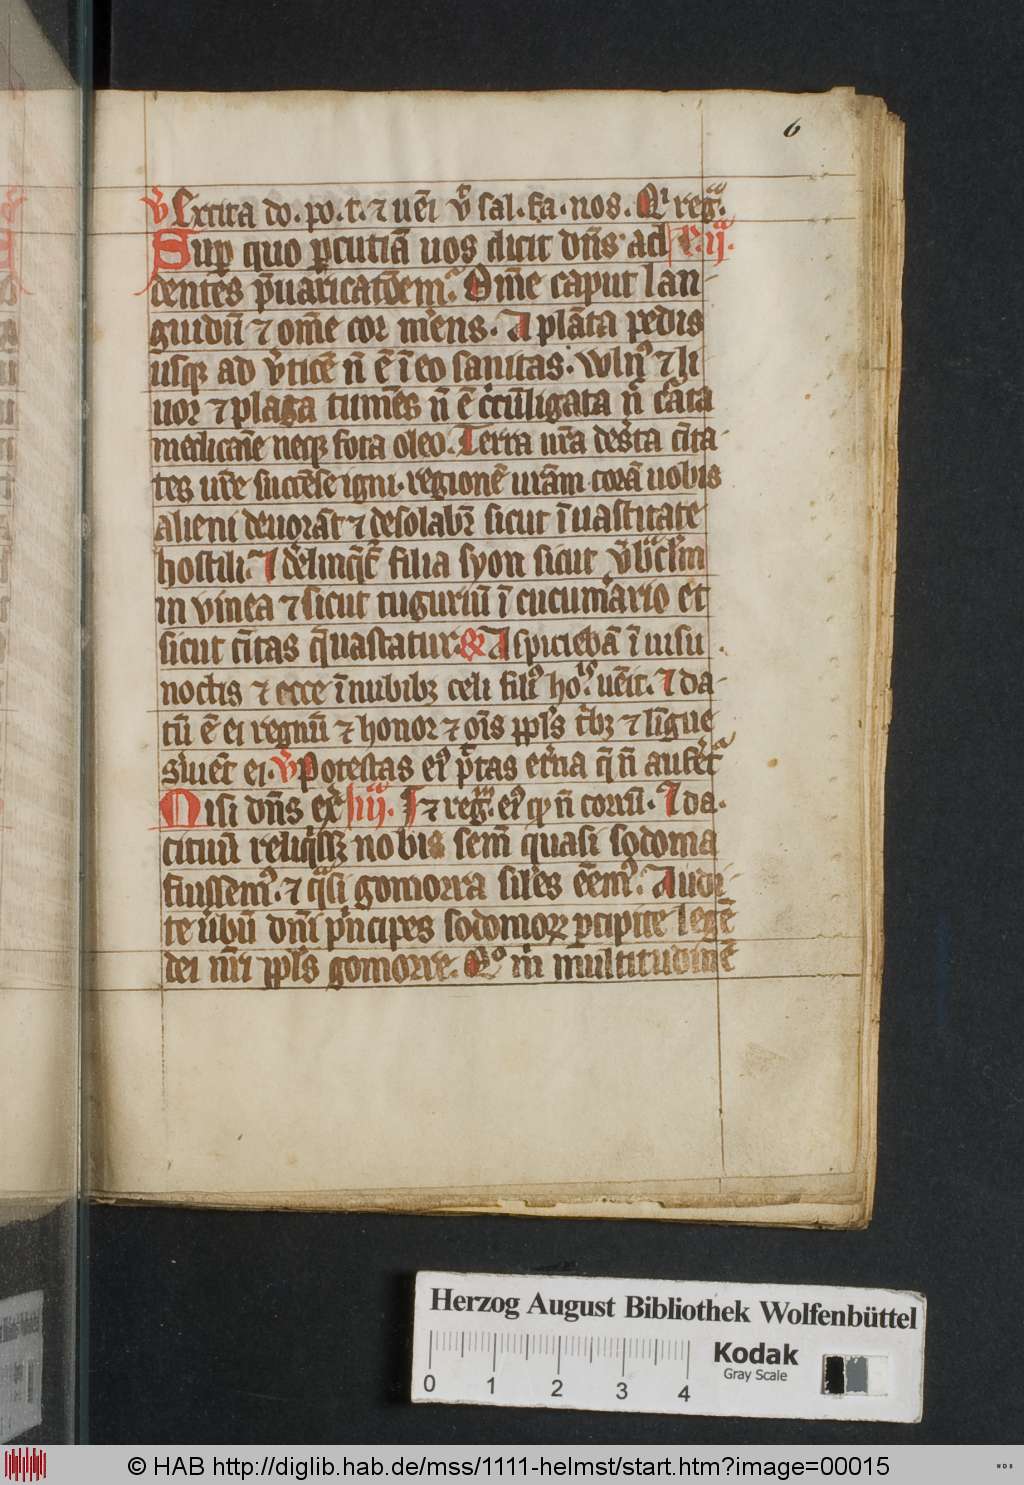 6
v̄ Excita do. po. t. ⁊ uēi v̄ sal. fa. nos. Q͛ reg.
Sup̱ quo ꝑcutiā uos dicit dn̄s ad l. ij.
dentes p̄uaricatōem. Om̄e caput lan-
guidū ⁊ om̄e cor mēns. A planta pedis
usqꝫ ad v̓ticē n̄ ē ī eo sanitas. Wln᷒ ⁊ li
uor ⁊ plaga tumēs n̄ ē circū̄ligata n̄ cᵃata
medicamīe neqꝫ fota oleo. Terra urā deserta cīta-
tes urē succēse igni. regionē urām corā uobis
alieni deuorāt ⁊ desolabit᷑ sicut ī uastitate
hostili. I derlinq̄t᷑ filia syon sicut v̓bᵃclm̄
in vinea ⁊ sicut tuguriū ī cucumario et
sicut cīitas q̄ uastatur. R Aspiciebā ī uisu
noctis ⁊ ecce ī nubibꝫ celi fili᷒ hoīs uēit. I da-
tū ē ei regnū ⁊ honor ⁊ oīs ppl̄s t̓bꝫ ⁊ līgue
s̓uiēt ei. v̄ Potestas ei᷒ p̄tas et̓na q̄ n̄ aufet᷑
Nisi dn̄s ex̓ iij. I ⁊ reg. ei᷒ qd n̄ corrū. I da.
cituū reliq̓ssꝫ nobis sem̄ quasi sodoma
fuissem᷒. ⁊ qᵃsi gomorra sil̄es eēm᷒. Audi-
te ūbū dnī p̓ncipes sodomoꝝ ꝑcipite legē
dei nr̄i ppl̄s gomorre. Qo m̓ multitudinē
Herzog August Bibliothek Wolfenbüttel
0 1 2 3 4
Kodak
Gray Scale
© HAB http://diglib.hab.de/mss/1111-helmst/start.htm?image=00015